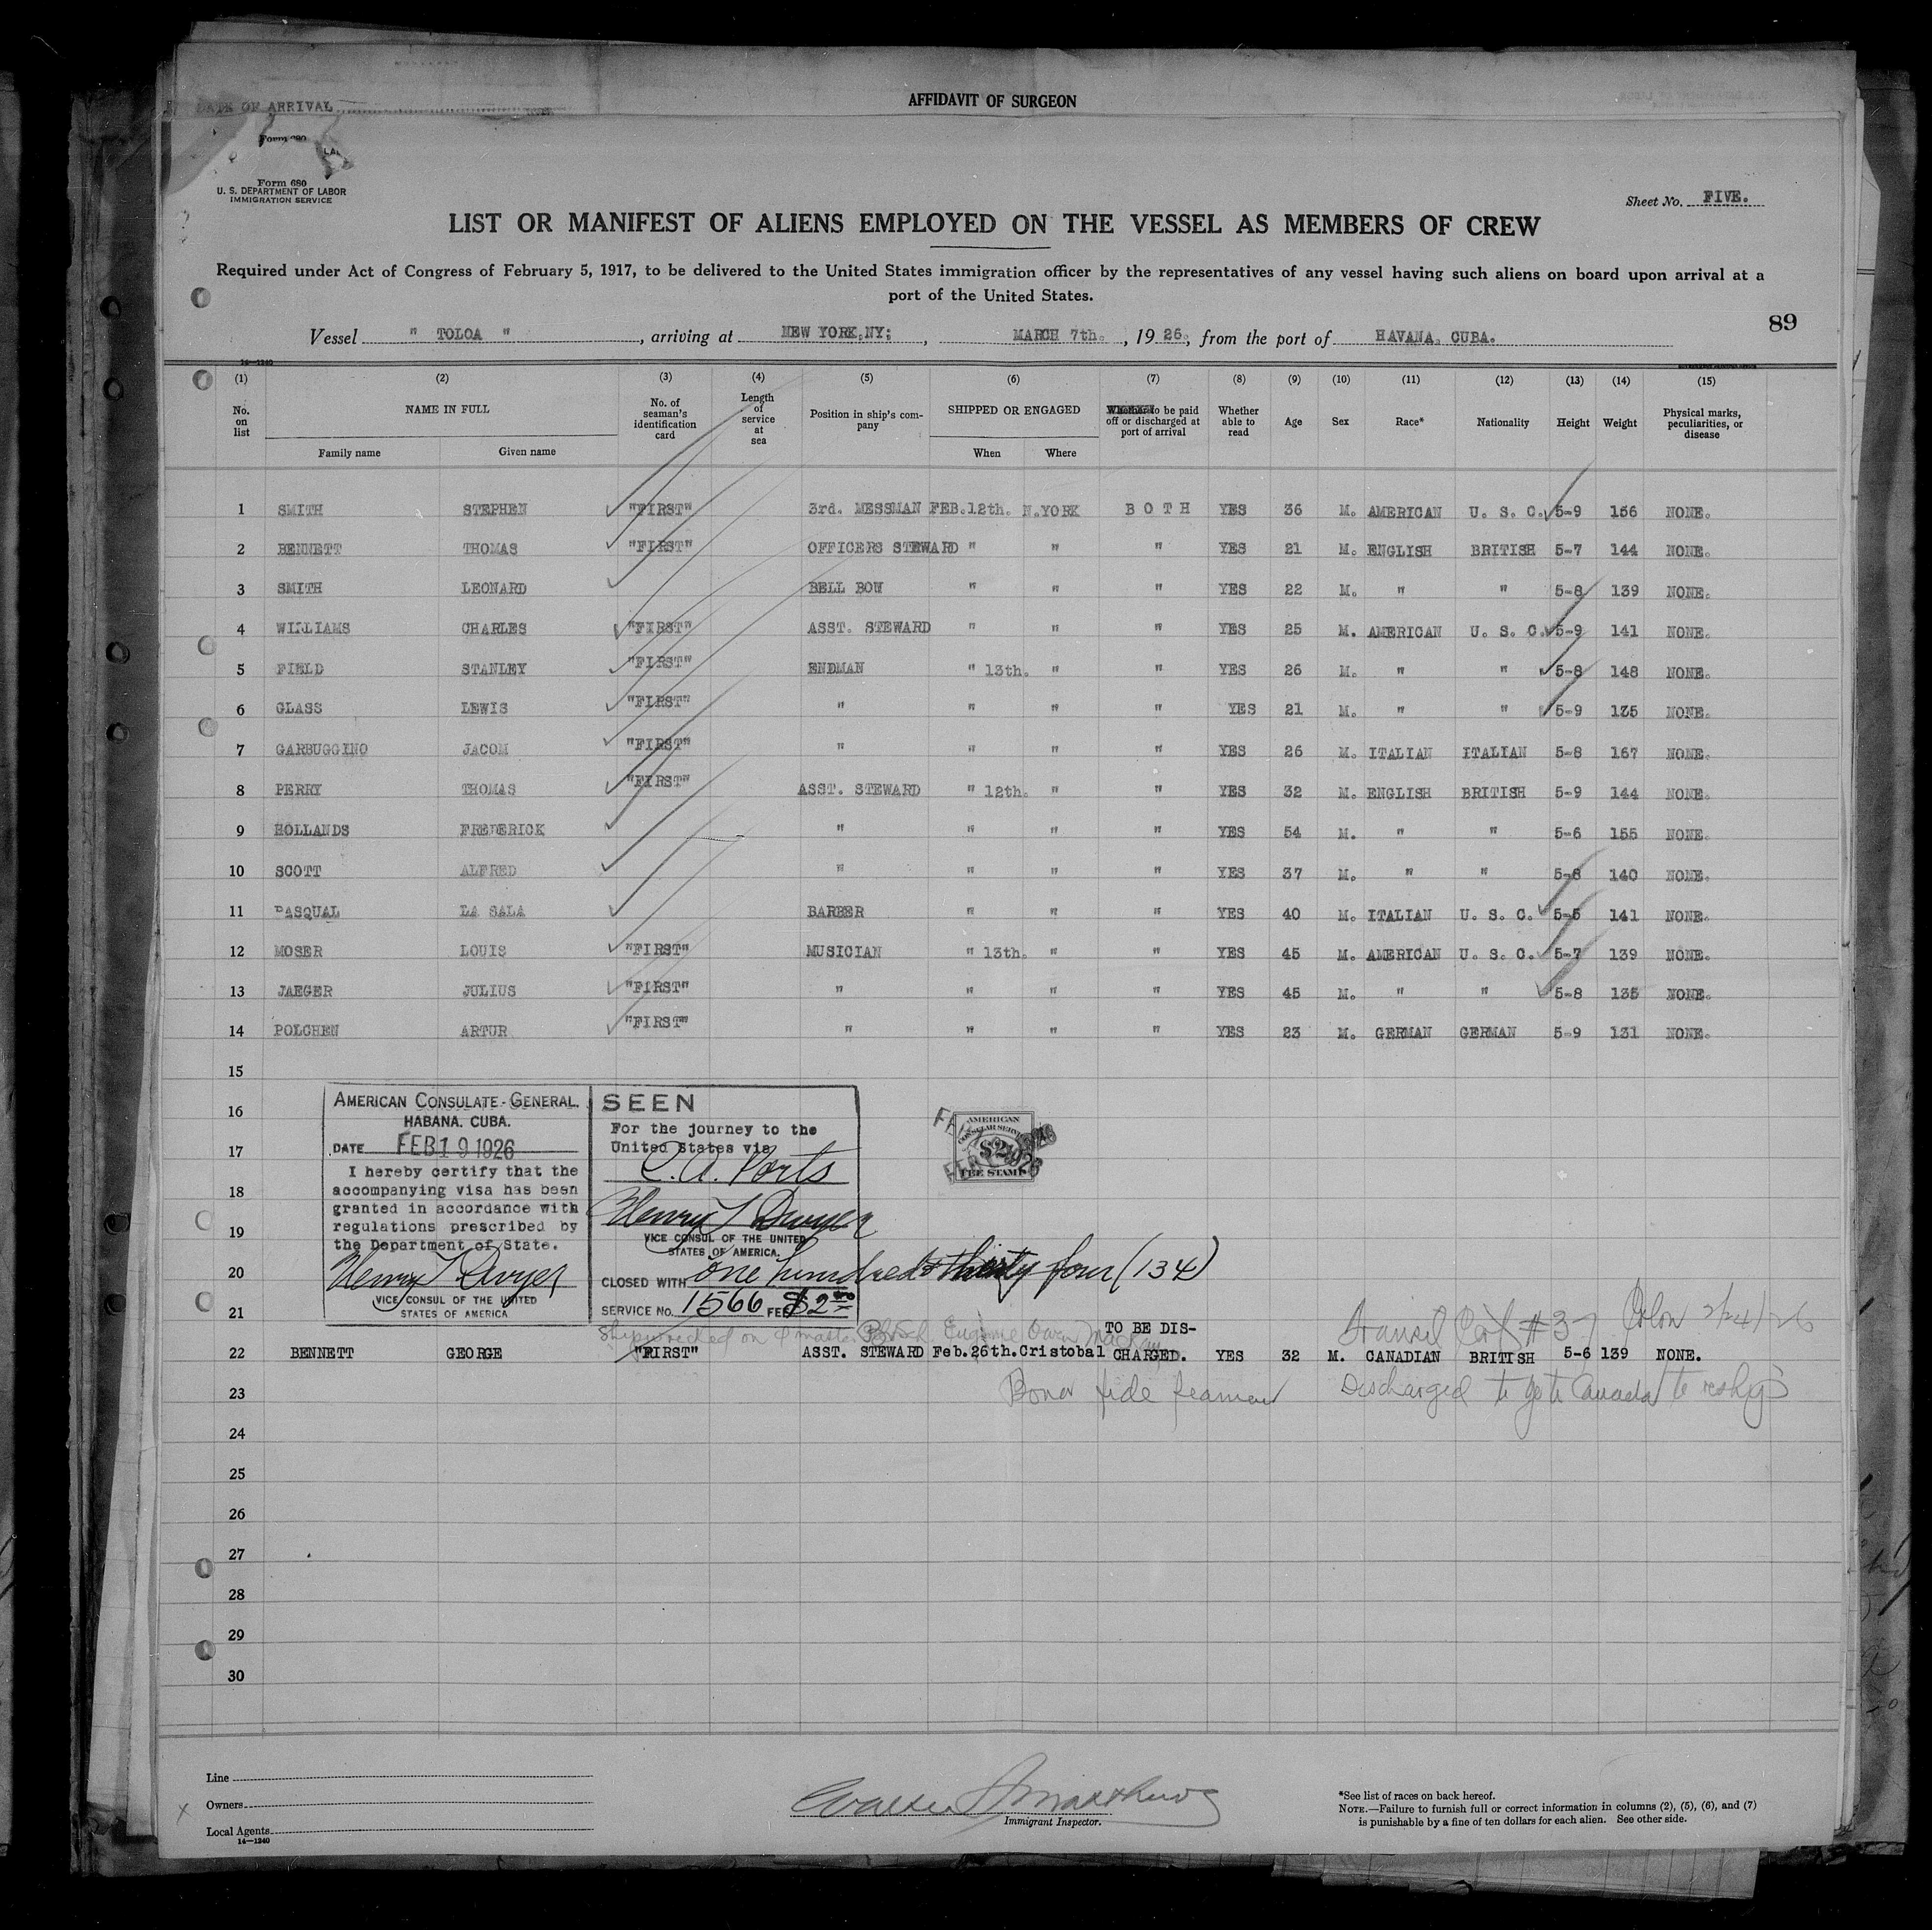 DATE OF ARRIVAL
AFFIDAVIT OF SURGEON
Form 680
Form 680
U. S. DEPARTMENT OF LABOR
IMMIGRATION SERVICE
Sheet No. FIVE.
LIST OR MANIFEST OF ALIENS EMPLOYED ON THE VESSEL AS MEMBERS OF CREW
Required under Act of Congress of February 5, 1917, to be delivered to the United States immigration officer by the representatives of any vessel having such aliens on board upon arrival at a
port of the United States.
89
Vessel " TOLOA " , arriving at NEW YORK,NY; , MARCH 7th. , 19 26. , from the port of HAVANA. CUBA.
14—1240
(1) (2) (3) (4) (5) (6) (7) (8) (9) (10) (11) (12) (13) (14) (15)
No. on list NAME IN FULL Family name Given name No. of seaman's identification card Length of service at sea Position in ship's company SHIPPED OR ENGAGED When Where Whether to be paid off or discharged at port of arrival Whether able to read Age Sex Race* Nationality Height Weight Physical marks, peculiarities, or disease
1 SMITH STEPHEN "FIRST" 3rd. MESSMAN FEB.12th. N.YORK B O T H YES 36 M. AMERICAN U. S. C. 5-9 156 NONE.
2 BENNETT THOMAS "FIRST" OFFICERS STEWARD " " " YES 21 M. ENGLISH BRITISH 5-7 144 NONE.
3 SMITH LEONARD BELL BOW " " " YES 22 M. " " 5-8 139 NONE.
4 WILLIAMS CHARLES "FIRST" ASST. STEWARD " " " YES 25 M. AMERICAN U. S. C. 5-9 141 NONE.
5 FIELD STANLEY "FIRST" ENDMAN " 13th. " " YES 26 M. " " 5-8 148 NONE.
6 GLASS LEWIS "FIRST" " " " " YES 21 M. " " 5-9 135 NONE.
7 GARBUGGINO JACOM "FIRST" " " " " YES 26 M. ITALIAN ITALIAN 5-8 167 NONE.
8 PERRY THOMAS "FIRST" ASST. STEWARD " 12th. " " YES 32 M. ENGLISH BRITISH 5-9 144 NONE.
9 HOLLANDS FREDERICK " " " " YES 54 M. " " 5-6 155 NONE.
10 SCOTT ALFRED " " " " YES 37 M. " " 5-8 140 NONE.
11 PASQUAL LA SALA BARBER " " " YES 40 M. ITALIAN U. S. C. 5-5 141 NONE.
12 MOSER LOUIS "FIRST" MUSICIAN " 13th. " " YES 45 M. AMERICAN U. S. C. 5-7 139 NONE.
13 JAEGER JULIUS "FIRST" " " " " YES 45 M. " " 5-8 135 NONE.
14 POLCHEN ARTUR "FIRST" " " " " YES 23 M. GERMAN GERMAN 5-9 131 NONE.
15
16
17
18
19
20
21
AMERICAN CONSULATE-GENERAL.
HABANA. CUBA.
DATE FEB 19 1926
I hereby certify that the
accompanying visa has been
granted in accordance with
regulations prescribed by
the Department of State.
Henry T Dwyer
VICE CONSUL OF THE UNITED
STATES OF AMERICA
SEEN
For the journey to the
United States via
C.A. Ports
Henry T Dwyer
VICE CONSUL OF THE UNITED
STATES OF AMERICA.
CLOSED WITH one hundred & thirty four (134)
SERVICE NO. 1566 FEE $2.00
AMERICAN
CONSULAR SERVICE
$2
FEE STAMP
1926
Shipwrecked on Eugenie Owen MacKay
Transit Cert #37 Colon 2/24/26
22 BENNETT GEORGE "FIRST" ASST. STEWARD Feb.26th. Cristobal TO BE DIS-CHARGED. YES 32 M. CANADIAN BRITISH 5-6 139 NONE.
Bona fide seaman Discharged to go to Canada to reship
23
24
25
26
27
28
29
30
Line
Owners
Local Agents
14—1240
Immigrant Inspector.
*See list of races on back hereof.
NOTE.—Failure to furnish full or correct information in columns (2), (5), (6), and (7)
is punishable by a fine of ten dollars for each alien. See other side.